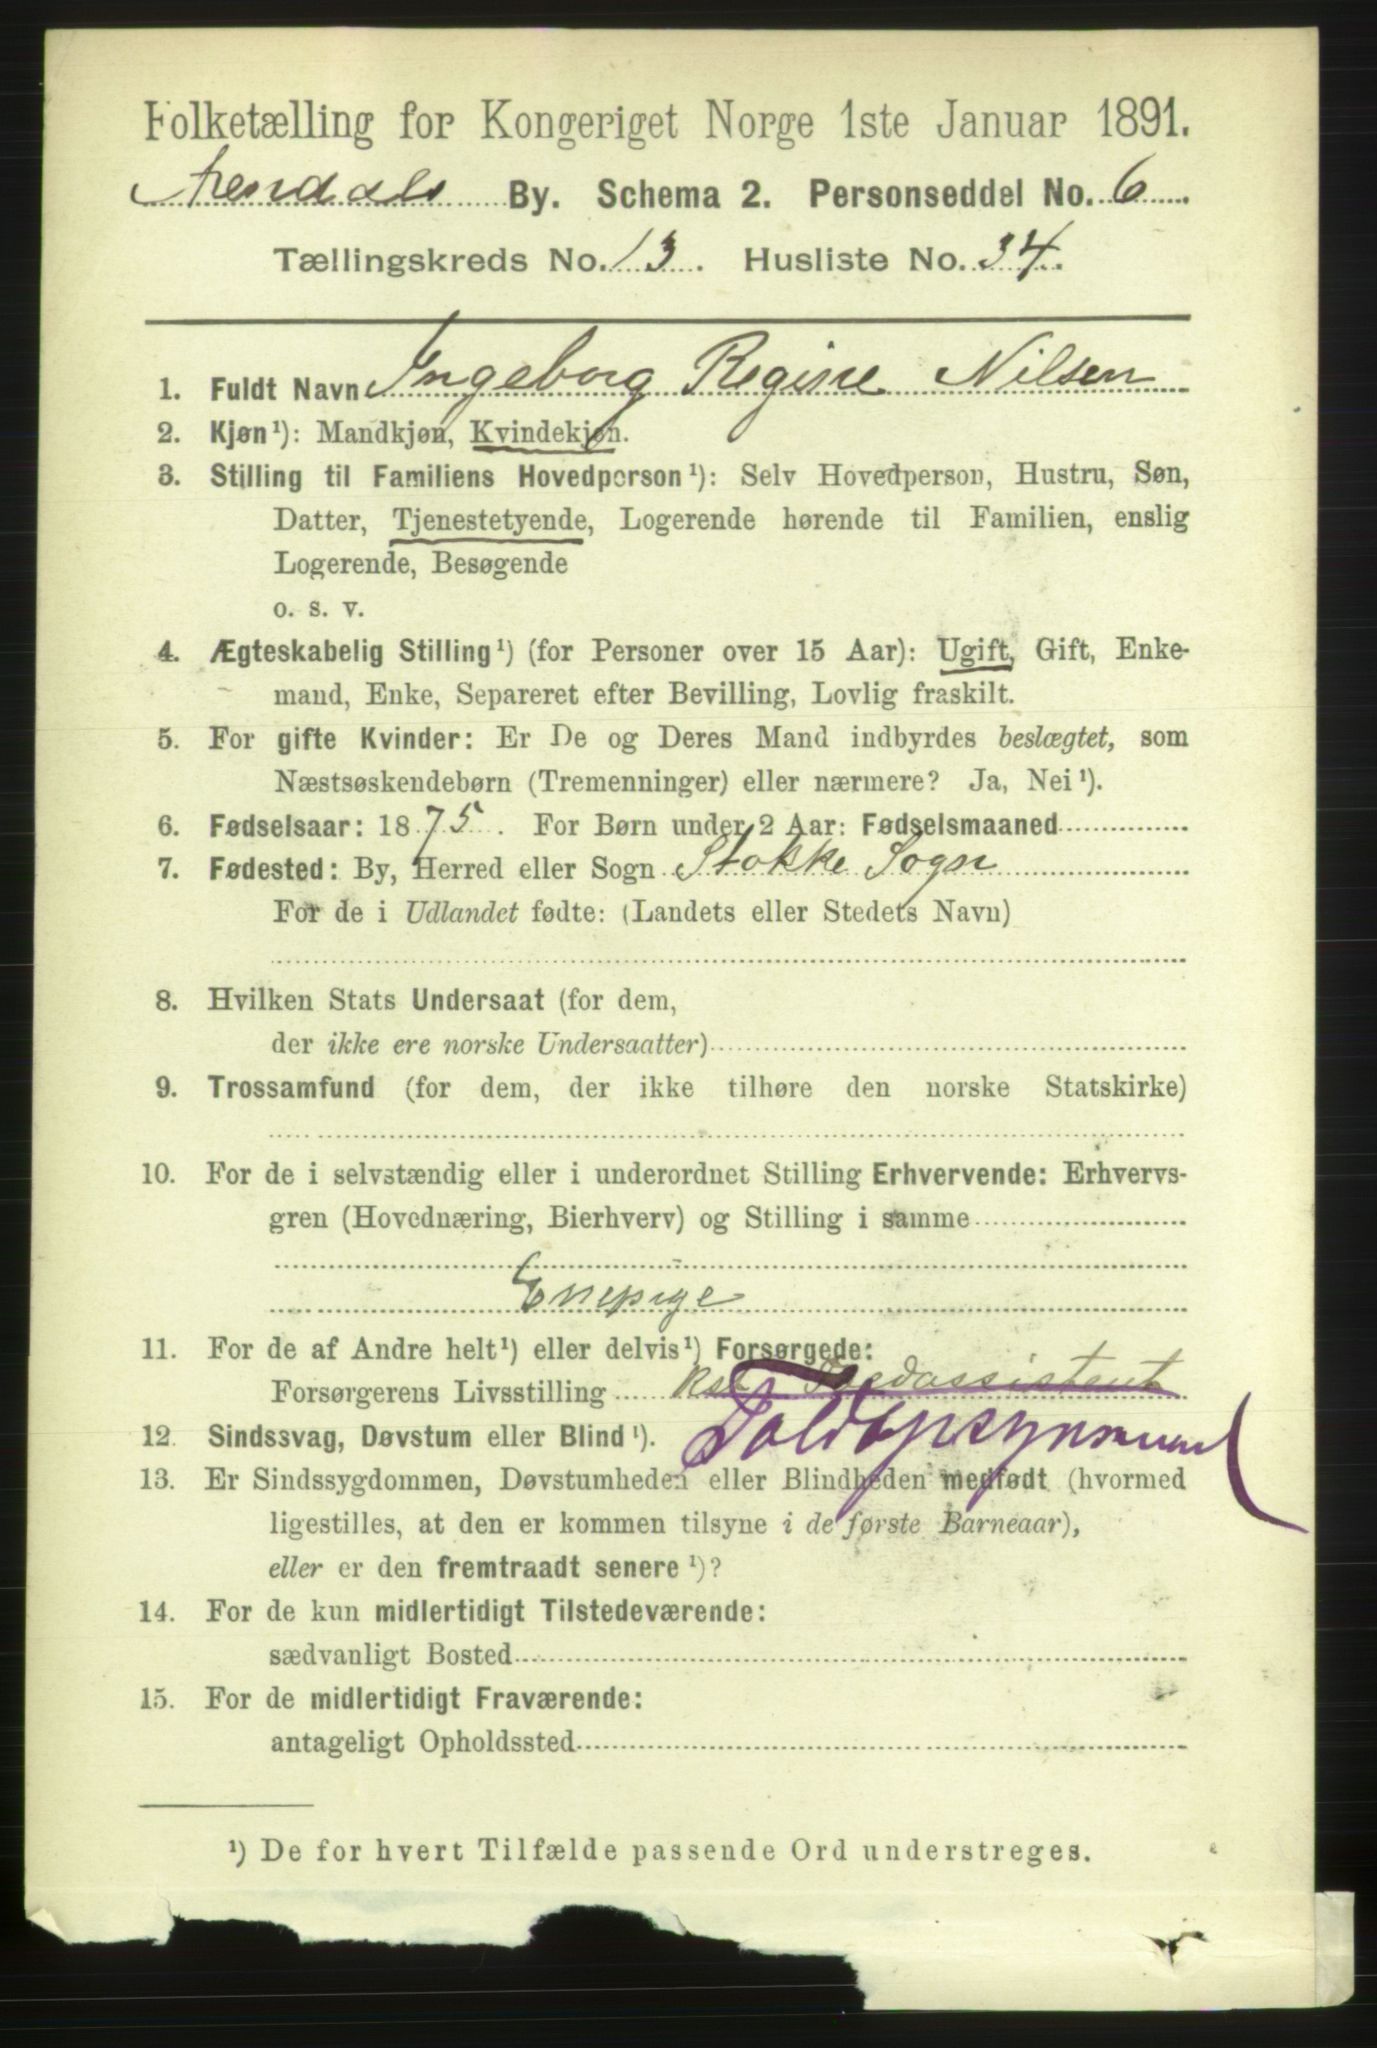 Folketælling for Kongeriget Norge 1ste Januar 1891.
Arendals By. Schema 2. Personseddel No. 6
Tællingskreds No. 13. Husliste No. 34.
1. Fuldt Navn Ingeborg Regine Nilsen
2. Kjøn¹): Mandkjøn, Kvindekjøn.
3. Stilling til Familiens Hovedperson¹): Selv Hovedperson, Hustru, Søn,
Datter, Tjenestetyende, Logerende hørende til Familien, enslig
Logerende, Besøgende
o. s. v.
4. Ægteskabelig Stilling¹) (for Personer over 15 Aar): Ugift, Gift, Enke-
mand, Enke, Separeret efter Bevilling, Lovlig fraskilt.
5. For gifte Kvinder: Er De og Deres Mand indbyrdes beslægtet, som
Næstsøskendebørn (Tremenninger) eller nærmere? Ja, Nei¹).
6. Fødselsaar: 1875. For Børn under 2 Aar: Fødselsmaaned
7. Fødested: By, Herred eller Sogn Stokke Sogn
For de i Udlandet fødte: (Landets eller Stedets Navn)
8. Hvilken Stats Undersaat (for dem,
der ikke ere norske Undersaatter)
9. Trossamfund (for dem, der ikke tilhøre den norske Statskirke)
10. For de i selvstændig eller i underordnet Stilling Erhvervende: Erhvervs-
gren (Hovednæring, Bierhverv) og Stilling i samme
Enepige
11. For de af Andre helt¹) eller delvis¹) Forsørgede:
Forsørgerens Livsstilling
Toldopsynsmand
12. Sindssvag, Døvstum eller Blind¹).
13. Er Sindssygdommen, Døvstumheden eller Blindheden medfødt (hvormed
ligestilles, at den er kommen tilsyne i de første Barneaar),
eller er den fremtraadt senere¹)?
14. For de kun midlertidigt Tilstedeværende:
sædvanligt Bosted
15. For de midlertidigt Fraværende:
antageligt Opholdssted
¹) De for hvert Tilfælde passende Ord understreges.